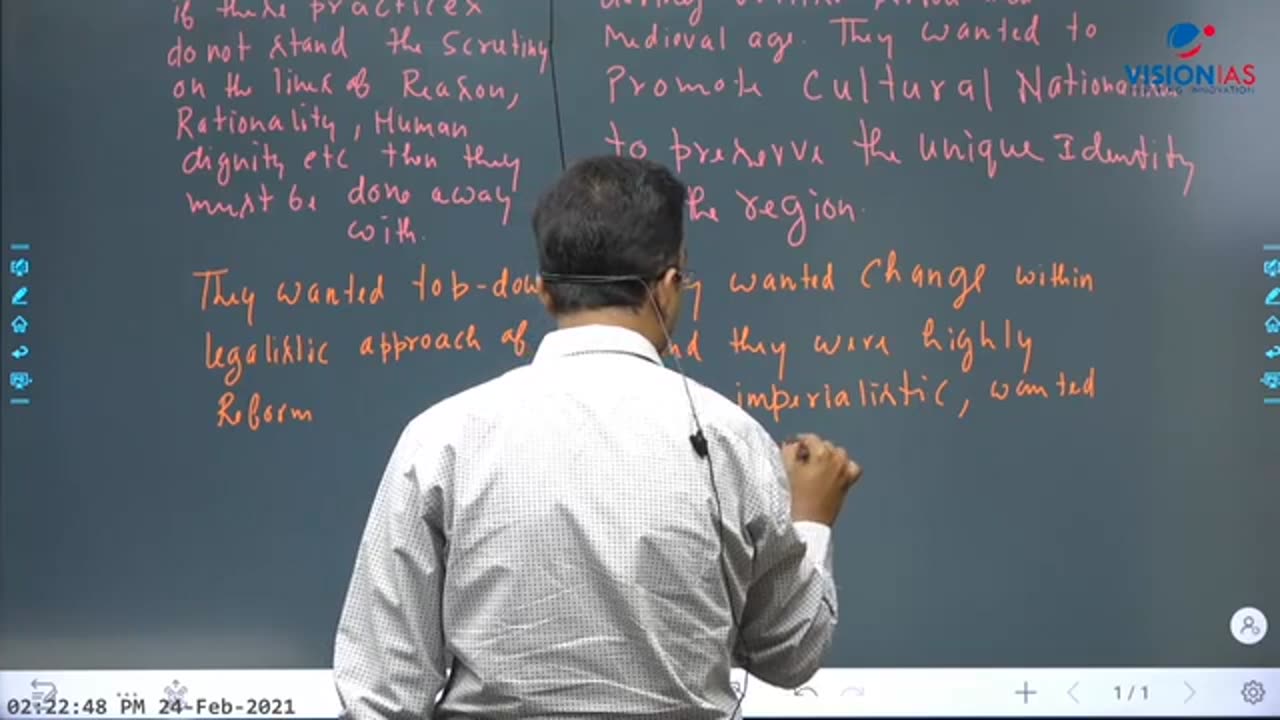 if these practices
do not stand the Scrutiny
on the lines of Reason,
Rationality, Human
dignity etc then they
must be done away
with.
Medieval age. They wanted to
Promote Cultural Nationalism
to preserve the unique Identity
the region.
They wanted top-down
legalistic approach of
Reform
wanted change within
and they were highly
imperialistic, wanted
VISIONIAS
INNOVATION
02:22:48 PM 24-Feb-2021
1/1